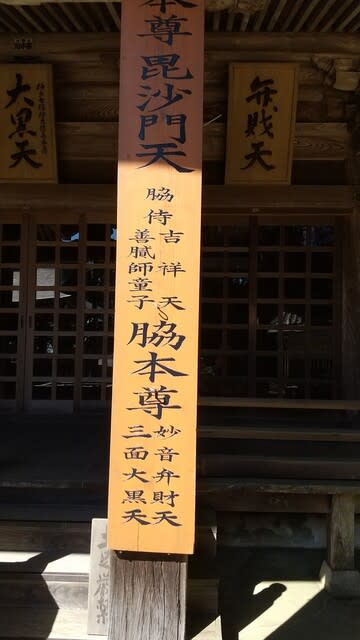 本尊毘沙門天
脇侍
吉祥天
善膩師童子
脇本尊
妙音弁財天
三面大黒天
大黒天
弁財天